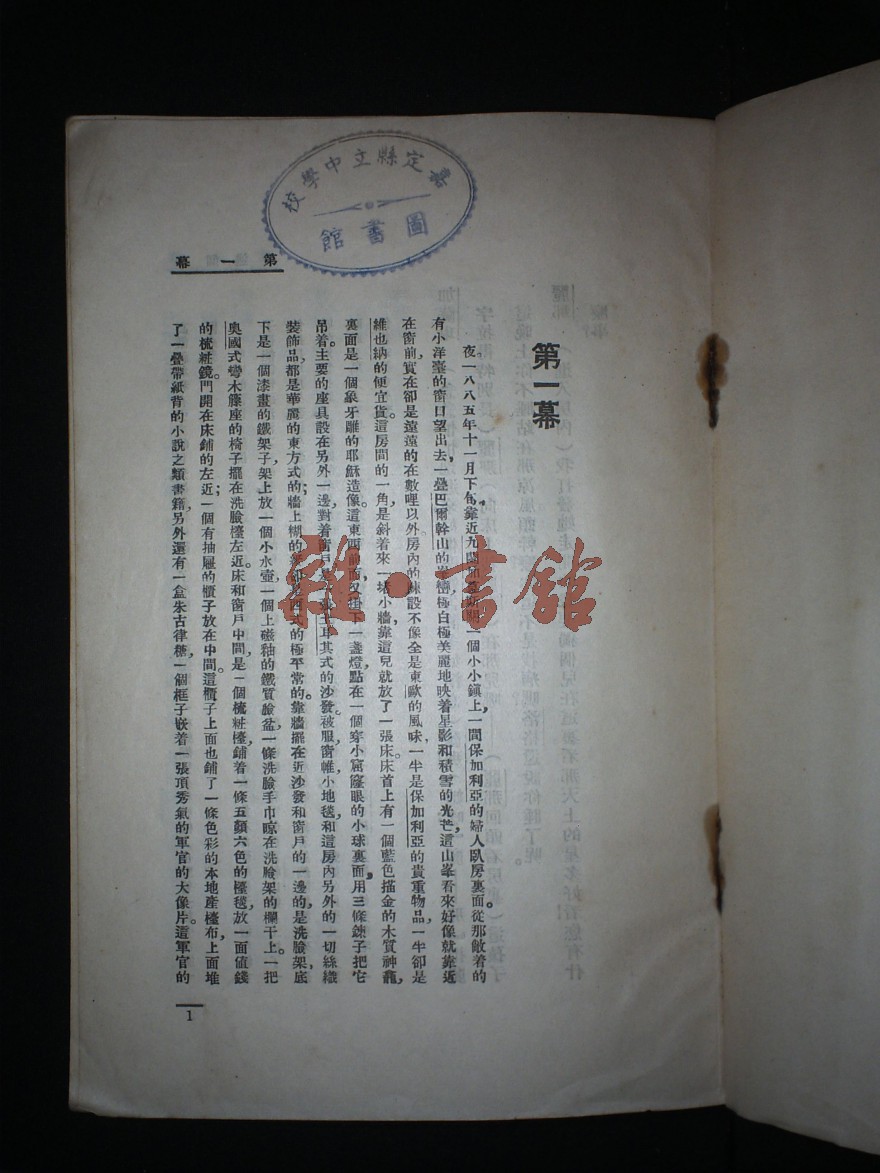 嘉定縣立中學校
圖書館
第一幕
第一幕
夜。一八八五年十一月下旬。靠近 一個小小鎮上,一間保加利亞的婦人臥房裏面。從那敞着的
有小洋臺的窗口望出去,一疊巴爾幹山的 巒極白極美麗地映着星影和積雪的光芒,這山峯看來好像就靠近
在窗前,實在卻是遠遠的在數哩以外。房內的 設不像全是東歐的風味,一半是保加利亞的貴重物品,一半卻是
維也納的便宜貨。這房間的一角,是斜着來一堵小牆,靠這兒就放了一張床。床首上有一個藍色描金的木質神龕,
裏面是一個象牙雕的耶穌造像。這東西前面又掛下一盞燈,點在一個穿小窟窿眼的小球裏面,用三條鍊子把它
吊着。主要的座具設在另外一邊,對着窗戶是一張土耳其式的沙發。被服,窗帷,小地毯,和這房內另外的一切絲織
裝飾品,都是華麗的東方式的;牆上糊的 西式的極平常的。靠牆擺在近沙發和窗戶的一邊的,是洗臉架,底
下是一個漆畫的鐵架子,架上放一個小水壺,一個上磁釉的鐵質臉盆,一條洗臉手巾晾在洗臉架的欄干上。一把
奧國式彎木籐座的椅子擺在洗臉檯左近。床和窗戶中間,是一個梳粧檯,鋪着一條五顏六色的檯毯,放一面值錢
的梳粧鏡。門開在床鋪的左近;一個有抽屜的櫃子放在中間。這櫃子上面也鋪了一條色彩的本地產檯布,上面堆
了一疊帶紙背的小說之類書籍,另外還有一盒朱古律糖,一個框子嵌着一張頂秀氣的軍官的大像片。這軍官的
1
雜·書館